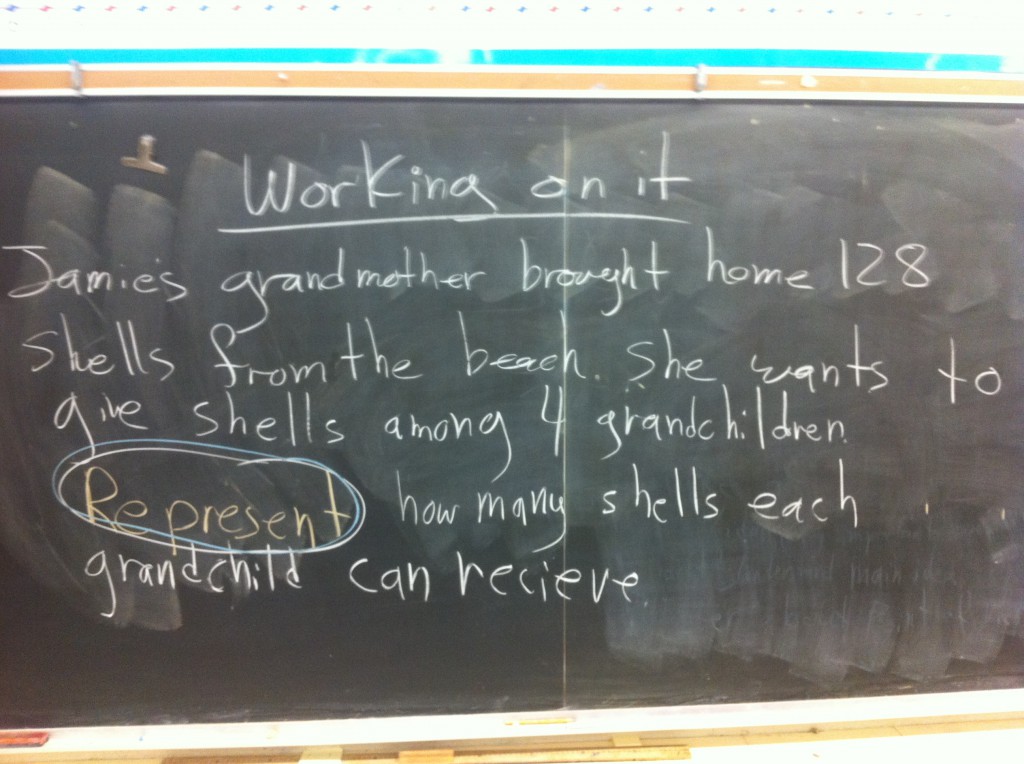 Working on it
Jamie's grandmother brought home 128
shells from the beach. She wants to
give shells among 4 grandchildren.
Represent how many shells each
grandchild can recieve
main idea